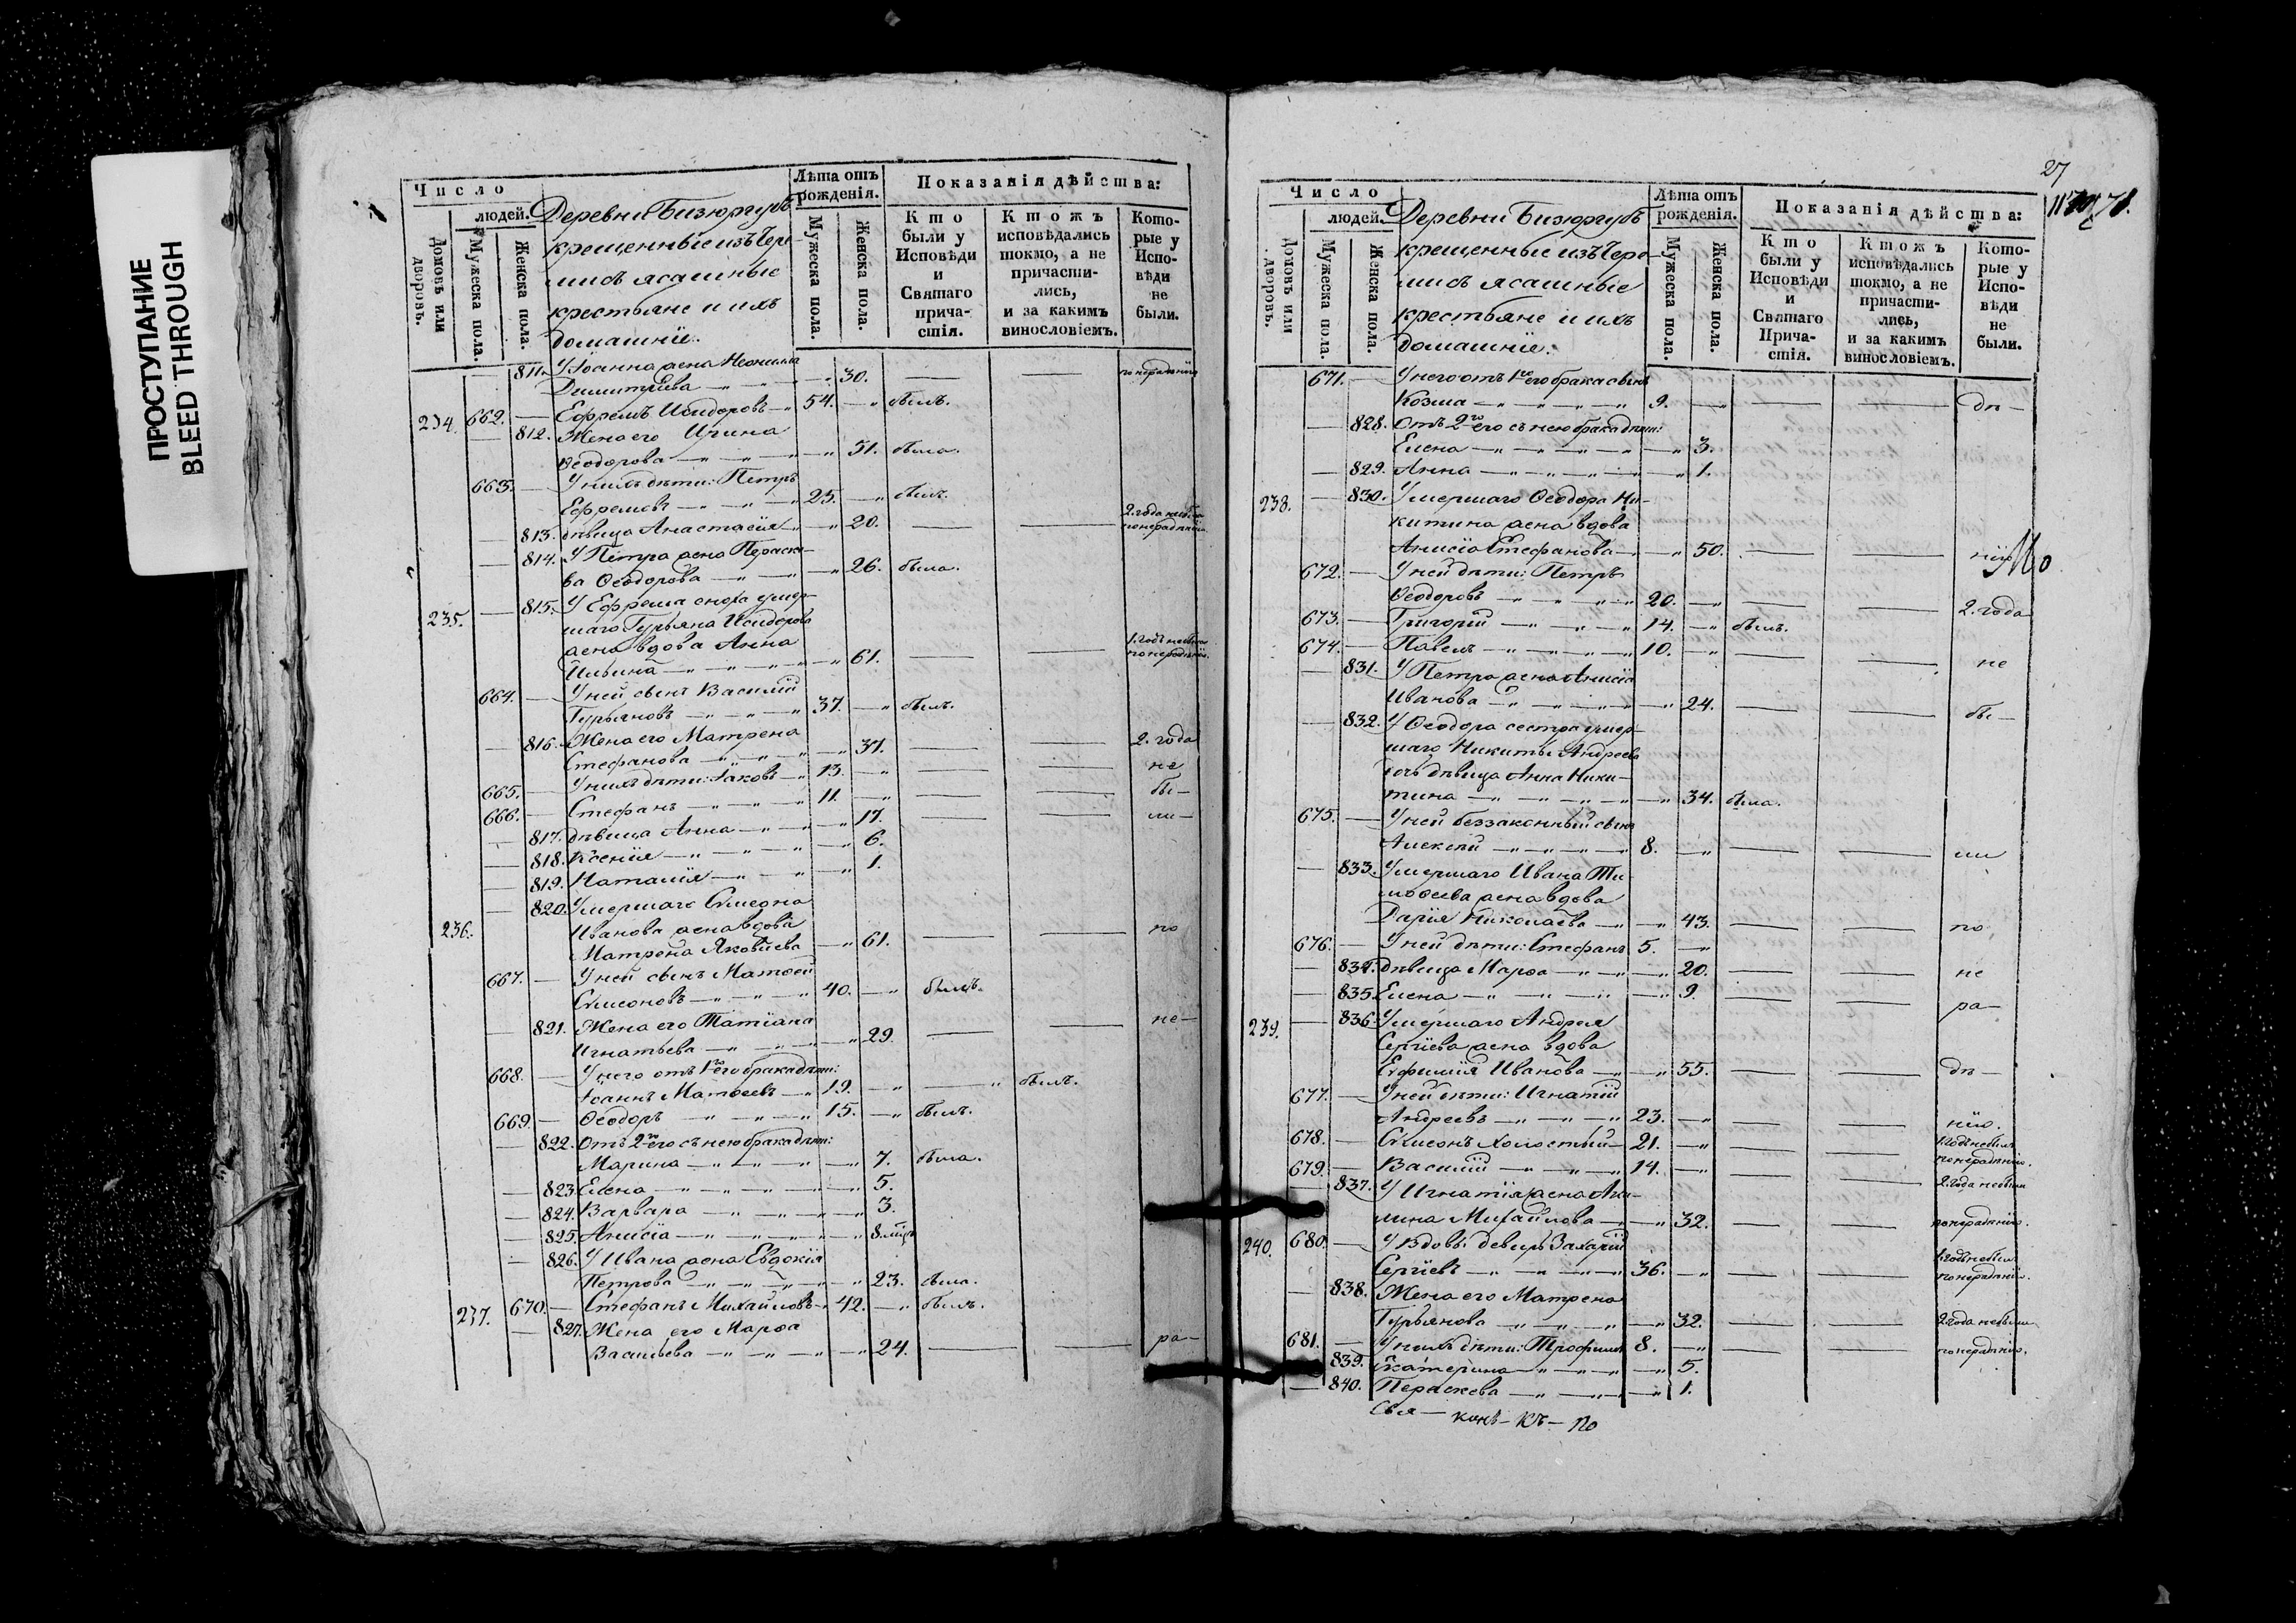 ПРОСТУПАНИЕ
BLEED THROUGH
Число
людей.
Домовъ или дворовъ.
Мужеска пола.
Женска пола.
Деревни Бизюргубъ
крещенные изъ Чере-
мисъ ясашные
крестьяне и ихъ
домашніе.
Лѣта отъ рожденія.
Мужеска пола.
Женска пола.
Показанія дѣйства:
Кто были у Исповѣди и Святаго причастія.
Ктожъ исповѣдались токмо, а не причастились, и за какимъ винословіемъ.
Которые у Исповѣди не были.
811. У Іоанна жена Неонилла
Димитріева 30. по нерадѣнію
234. 662. Ефремъ Исидоровъ 54. былъ.
812. Жена его Ирина
Ѳеодорова 51. была.
663. У нихъ дѣти: Петръ
Ефремовъ 25. былъ.
813. дѣвица Анастасія 20. 2. года не была по нерадѣнію.
814. У Петра жена Параске-
ва Ѳеодорова 26. была.
235. 815. У Ефрема сноха умер-
шаго Гурьяна Исидорова
жена вдова Анна
Ильина 61. 1. годъ не была по нерадѣнію.
664. У ней сынъ Василій
Гурьяновъ 37. былъ.
816. Жена его Матрена
Стефанова 37. 2. года
665. У нихъ дѣти: Іаковъ 13. не
666. Стефанъ 11. бы-
817. дѣвица Анна 17. ли-
818. Ксенія 6.
819. Наталія 1.
236. 820. Умершаго Симеона
Иванова жена вдова
Матрена Яковлева 61. по
667. У ней сынъ Матѳей
Симеоновъ 40. былъ.
821. Жена его Татіана
Игнатьева 29. не-
668. У него отъ 1го его брака дѣти:
Іоаннъ Матѳеевъ 19. былъ.
669. Ѳеодоръ 15. былъ.
822. Отъ 2го его съ нею брака дѣти:
Марина 7. была.
823. Елена 5.
824. Варвара 3.
825. Анисія 8. мцъ
826. У Ивана жена Евдокія
Петрова 23. была.
237. 670. Стефанъ Михайловъ 42. былъ.
827. Жена его Марѳа
Васильева 24. ра-
27
Число
людей.
Домовъ или дворовъ.
Мужеска пола.
Женска пола.
Деревни Бизюргубъ
крещенные изъ Чере-
мисъ ясашные
крестьяне и ихъ
домашніе.
Лѣта отъ рожденія.
Мужеска пола.
Женска пола.
Показанія дѣйства:
Кто были у Исповѣди и Святаго Причастія.
Ктожъ исповѣдались токмо, а не причастились, и за какимъ винословіемъ.
Которые у Исповѣди не были.
671. У него отъ 1го его брака сынъ
Козма 9. дѣ-
828. Отъ 2го его съ нею брака дѣти:
Елена 3.
829. Анна 1.
238. 830. Умершаго Ѳеодора Ни-
китина жена вдова
Анисія Стефанова 50. нію
672. У ней дѣти: Петръ
Ѳеодоровъ 20. 2. года
673. Григорій 14. былъ.
674. Павелъ 10. не
831. У Петра жена Анисія
Иванова 24. бы-
832. У Ѳеодора сестра умер-
шаго Никиты Андреева
дочь дѣвица Анна Ники-
тина 34. была.
675. У ней беззаконный сынъ
Алексѣй 8. ли
833. Умершаго Ивана Ти-
моѳеева жена вдова
Дарія Николаева 43. по
676. У ней дѣти: Стефанъ 5.
834. дѣвица Марѳа 20. не
835. Елена 9. ра-
239. 836. Умершаго Андрея
Сергіева жена вдова
Евфимія Иванова 55. дѣ-
677. У ней дѣти: Игнатій
Андреевъ 23. нію.
678. Симеонъ холостый 21. 1. годъ не былъ
679. Василій 14. по нерадѣнію.
837. У Игнатія жена Аку- 2. года не были
лина Михайлова 32. по нерадѣнію.
240. 680. У вдовы деверь Захарій
Сергіевъ 36. 1. годъ не былъ по нерадѣнію.
838. Жена его Матрена
Гурьянова 32. 2. года не были
681. У нихъ дѣти: Трофимъ 8. по нерадѣнію.
839. Екатерина 5.
840. Параскева 1.